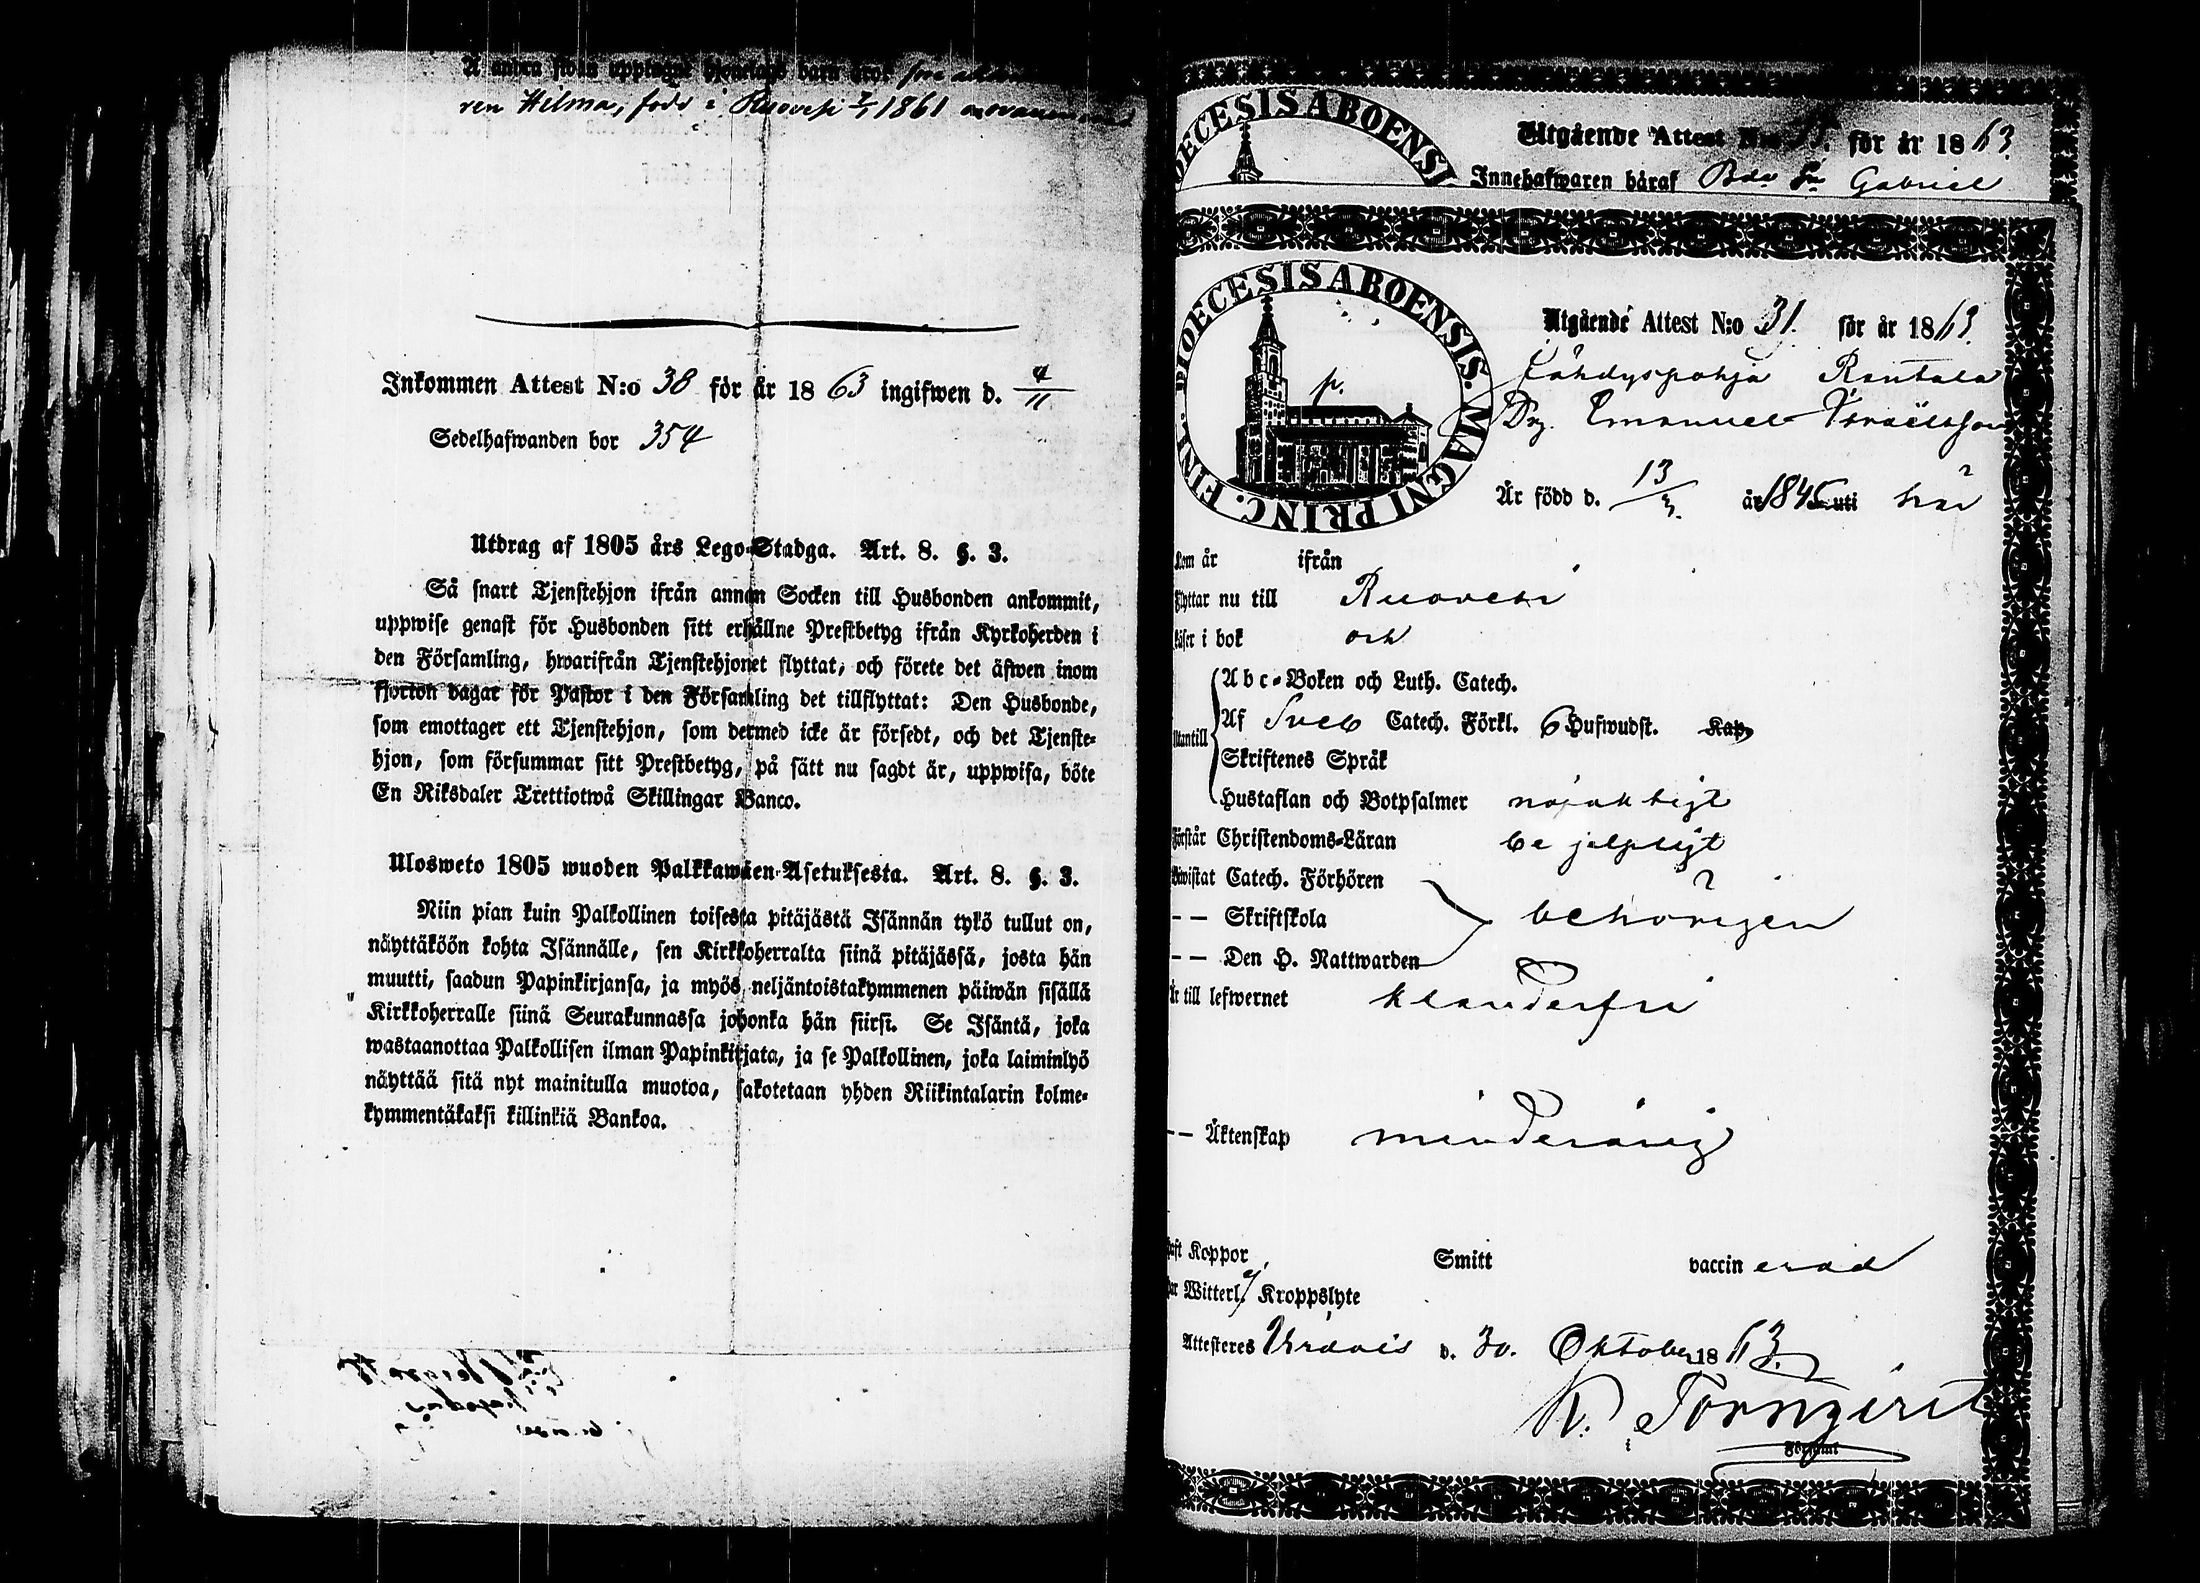 Å andra sidan upptagne hjonelags barn äro:
ren Hilma, född i Ruovesi 1861
Inkommen Attest N:o 38 för år 1863 ingifwen d. 4/11
Sedelhafwanden bor 354
Utdrag af 1805 års Lego-Stadga. Art. 8. §. 3.
Så snart Tjenstehjon ifrån annan Socken till Husbonden ankommit,
uppwise genast för Husbonden sitt erhållne Prestbetyg ifrån Kyrkoherden i
den Församling, hwarifrån Tjenstehjonet flyttat, och förete det äfwen inom
fjorton dagar för Pastor i den Församling det tillflyttat: Den Husbonde,
som emottager ett Tjenstehjon, som dermed icke är försedt, och det Tjenste-
hjon, som försummar sitt Prestbetyg, på sätt nu sagdt är, uppwisa, böte
En Riksdaler Trettiotwå Skillingar Banco.
Ulosweto 1805 wuoden Palkkawäen-Asetuksesta. Art. 8. §. 3.
Niin pian kuin Palkollinen toisesta pitäjästä Isännän tykö tullut on,
näyttäköön kohta Isännälle, sen Kirkkoherralta siinä pitäjässä, josta hän
muutti, saadun Papinkirjansa, ja myös neljäntoistakymmenen päiwän sisällä
Kirkkoherralle siinä Seurakunnassa johonka hän siirsi. Se Isäntä, joka
wastaanottaa Palkollisen ilman Papinkirjata, ja se Palkollinen, joka laiminlyö
näyttää sitä nyt mainitulla muotoa, sakotetaan yhden Riikintalarin kolme-
kymmentäkaksi killinkiä Bankoa.
DIOECESIS ABOENSI
Utgående Attest N:o för år 1863.
Innehafwaren båraf Gabriel
DIOECESIS ABOENSIS. MAGNI PRINC. FINL.
Utgående Attest N:o 31. för år 1863.
Lähdyspohja Rantala
Drg. Emanuel Israëlsson
Är född d. 13/3. år 1845 uti här
Kom år ifrån
Flyttar nu till Ruovesi
Läser i bok och
Abc-Boken och Luth. Catech.
Utantill Af Sveb Catech. Förkl. 6 Hufwudst. Kap.
Skriftenes Språk
Hustaflan och Botpsalmer nöjaktigt
Förstår Christendoms-Läran behjelpligt
Bewistat Catech. Förhören
— — Skriftskola behörigen
— — Den H. Nattwarden
Är till lefwernet klanderfri
— — Äktenskap minderårig
Haft Koppor Smitt vaccinerad
Har Witterl. ej Kroppslyte
Attesteres Virdois d. 30. Oktober 1863.
K. Törnqvist